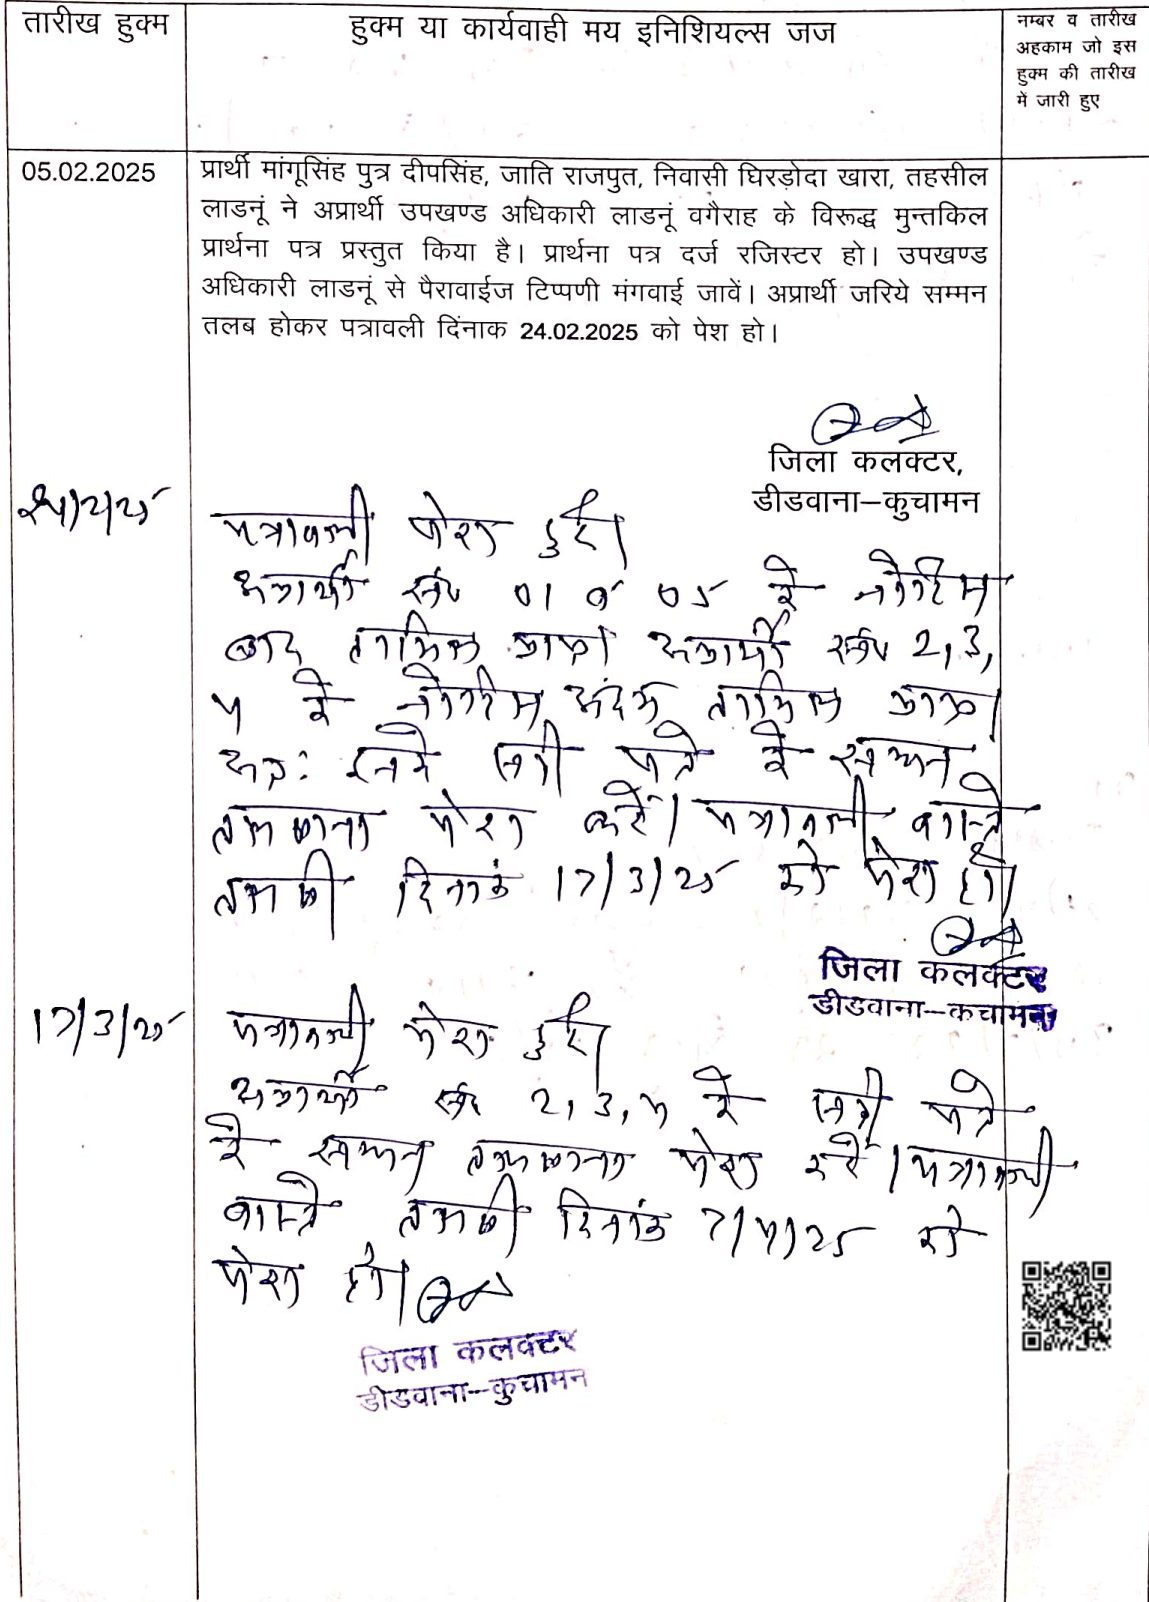 तारीख हुक्म
हुक्म या कार्यवाही मय इनिशियल्स जज
नम्बर व तारीख
अहकाम जो इस
हुक्म की तारीख
में जारी हुए
05.02.2025
प्रार्थी मांगूसिंह पुत्र दीपसिंह, जाति राजपुत, निवासी घिरड़ोदा खारा, तहसील
लाडनूं ने अप्रार्थी उपखण्ड अधिकारी लाडनूं वगैराह के विरूद्ध मुन्तकिल
प्रार्थना पत्र प्रस्तुत किया है। प्रार्थना पत्र दर्ज रजिस्टर हो। उपखण्ड
अधिकारी लाडनूं से पैरावाईज टिप्पणी मंगवाई जावें। अप्रार्थी जरिये सम्मन
तलब होकर पत्रावली दिंनाक 24.02.2025 को पेश हो।
जिला कलक्टर,
डीडवाना–कुचामन
पत्रावली पेश हुई।
अप्रार्थी संख्या 01 व 05 के नोटिस
बाद तामिल प्राप्त अप्रार्थी संख्या 2, 3,
4 के नोटिस अदम तामिल प्राप्त।
अतः इनके सही पते के समन
तलबाना पेश करें। पत्रावली वास्ते
तलबी दिनांक 17/3/25 को पेश हो।
जिला कलक्टर
डीडवाना–कुचामन
17/3/25
पत्रावली पेश हुई।
अप्रार्थी संख्या 2, 3, 4 के सही पते
के समन तलबाना पेश करें। पत्रावली
वास्ते तलबी दिनांक 7/4/25 को
पेश हो।
जिला कलक्टर
डीडवाना–कुचामन